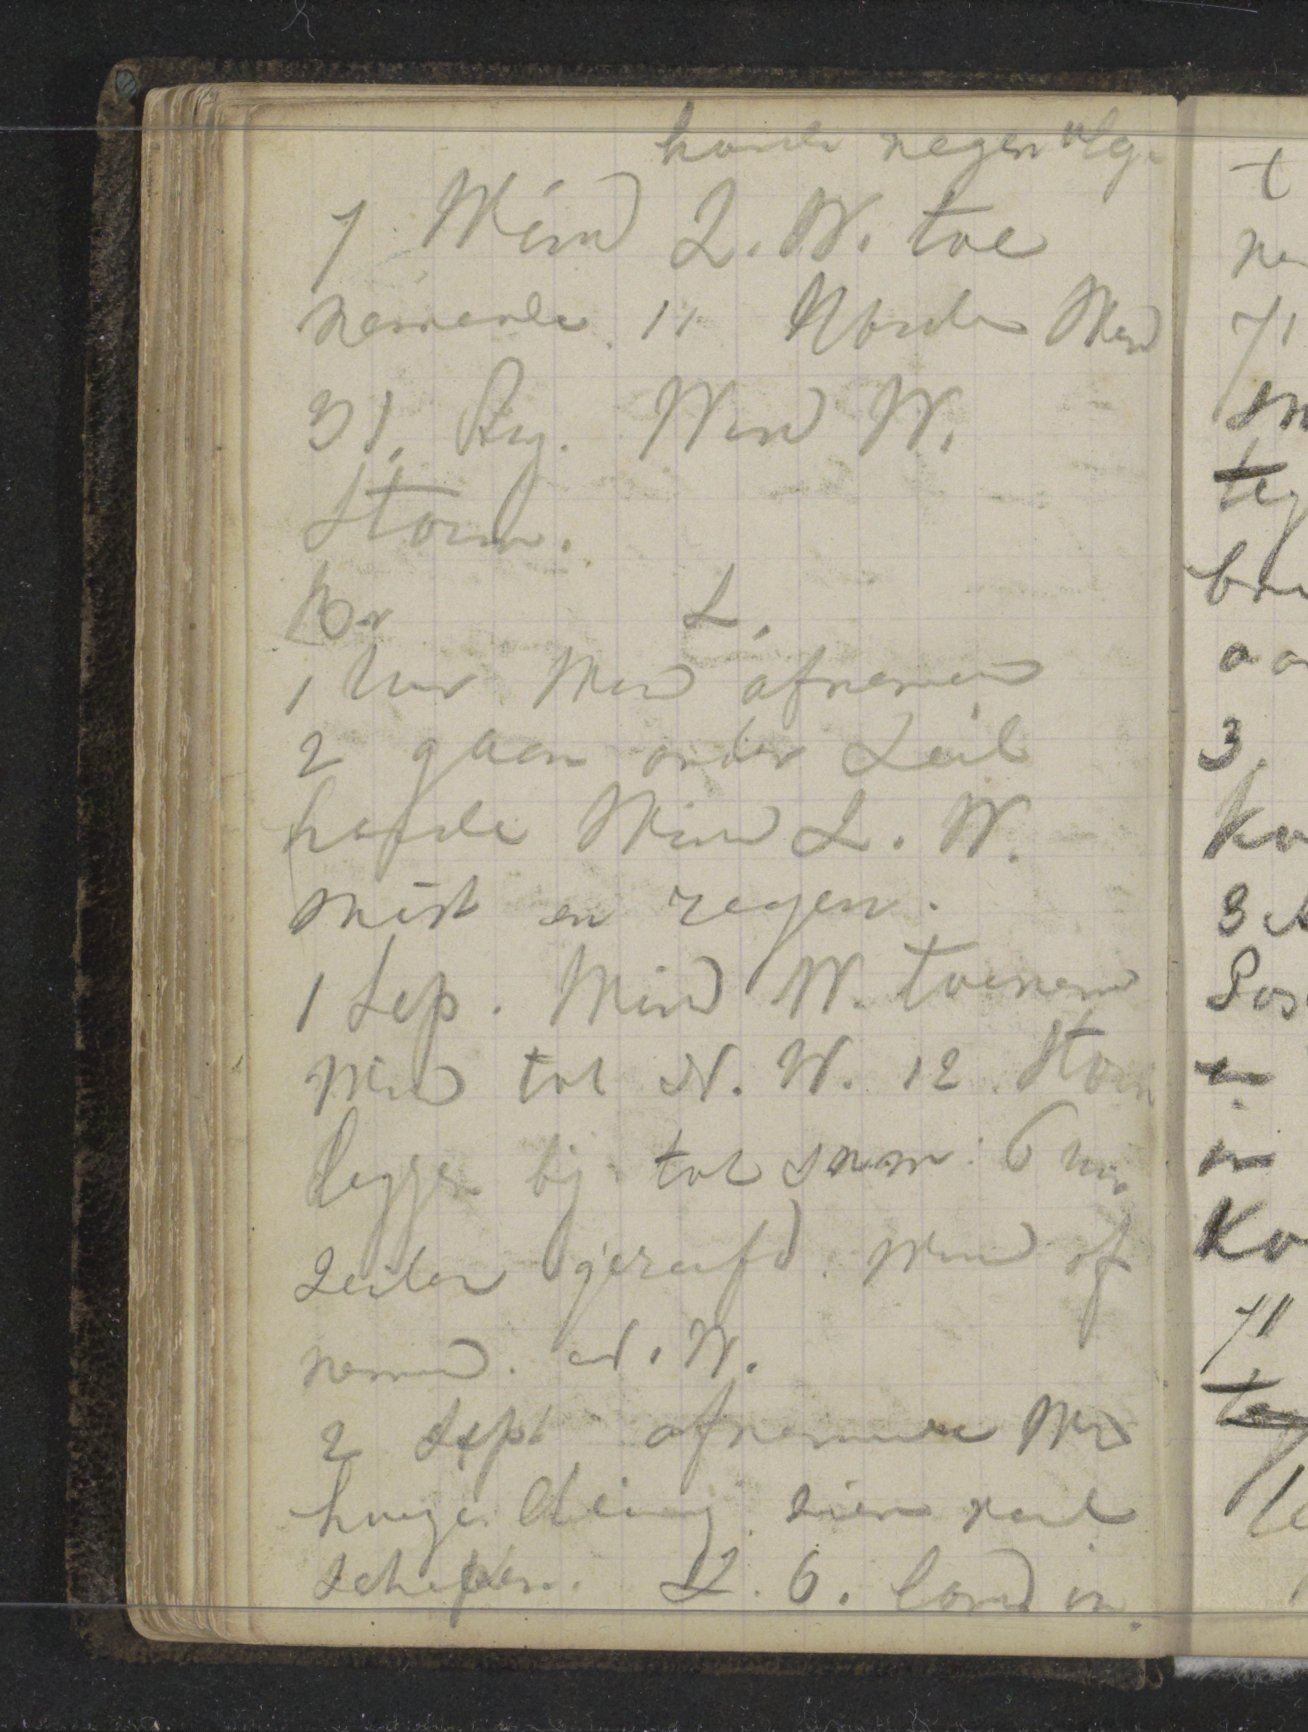 harde regen
7 Wind Z. W. toe
nemende 11 Harde Wind
31 Aug. Wind W.
Storm.
Br L.
1 Uur Wind afnemend
2 gaan onder Zeil
harde Wind Z. W.
mist en regen.
1 Sep. Wind W. toenem
Wind tot N. W. 12 Storm
leggen bij tot snam: 6 uur
Zeilen gereefd. Wind af
nemend. N. W.
2 Sept afnemende Wind
hooge deining zien veel
schepen. Z. 6. land in